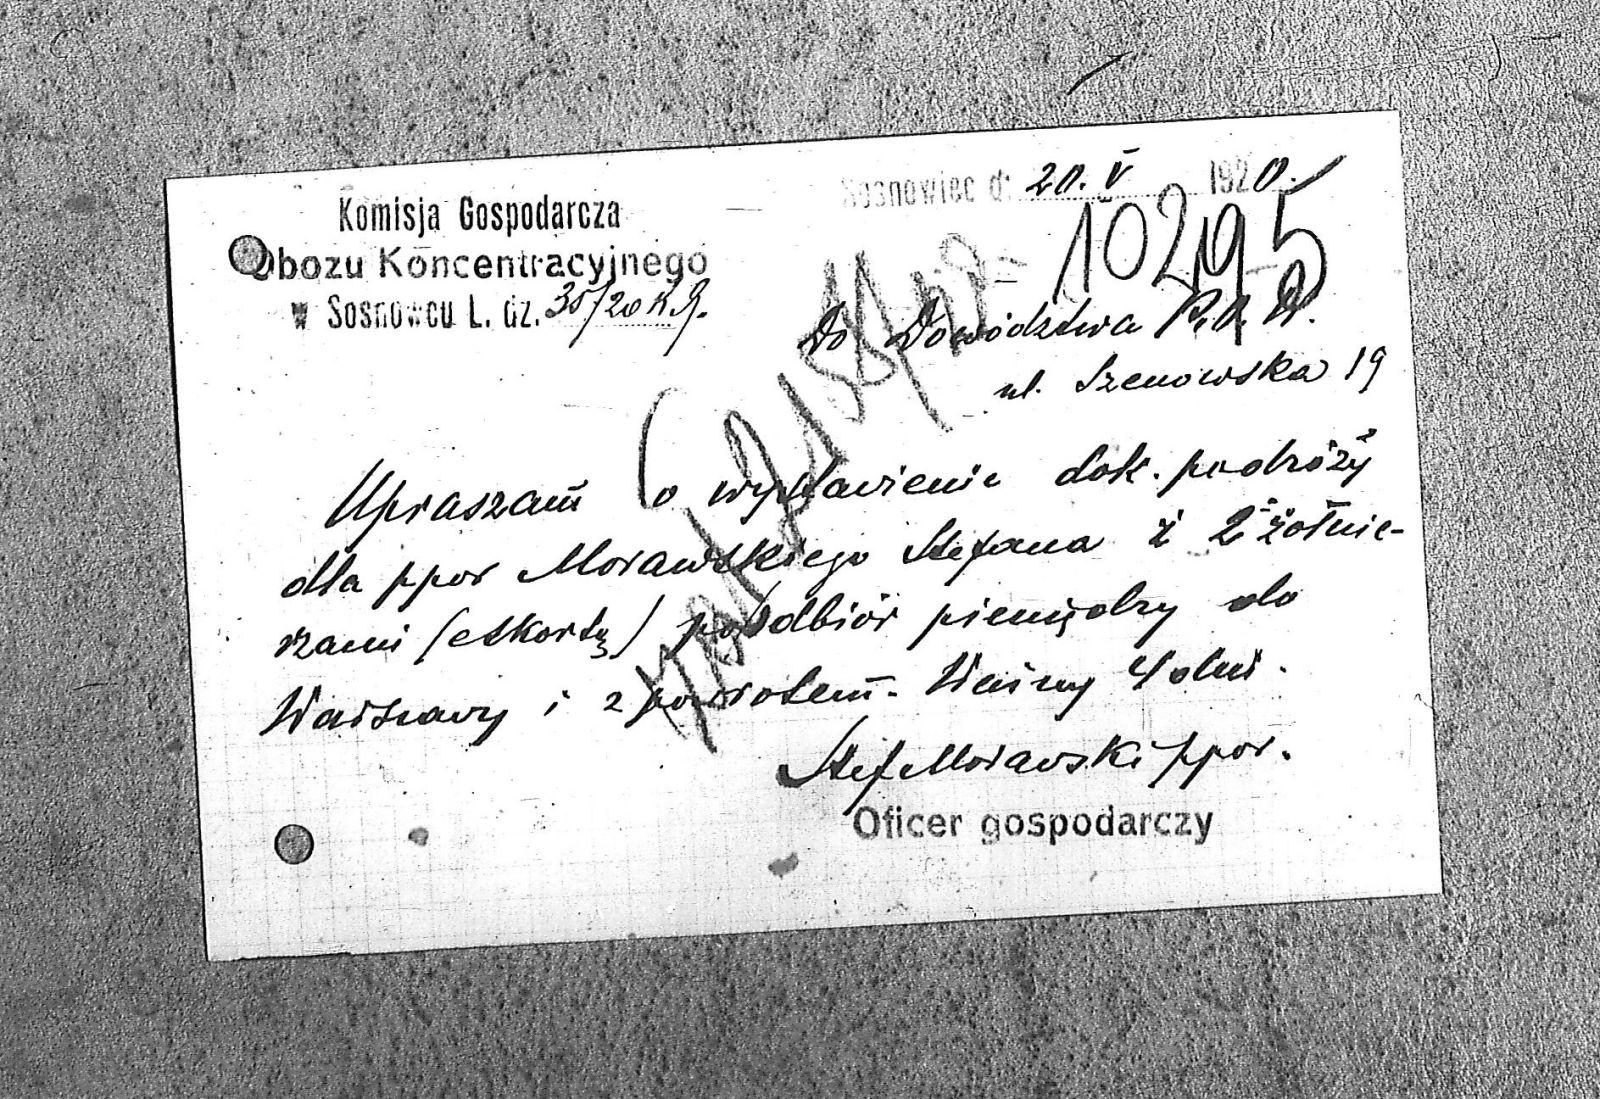 Sosnowiec d. 20. V 1920.
10295
Komisja Gospodarcza
Obozu Koncentracyjnego
w Sosnowcu L. dz. 35/20 K.G.
Do Dowództwa
ul. Szenowska 19
Upraszam o wystawienie dok. podróży
dla ppor Morawskiego Stefana z 2 żołnie-
rzami (eskortą) po odbiór pieniędzy do
Warszawy i z powrotem. Ważny 4 dni.
Stef Morawski ppor.
Oficer gospodarczy